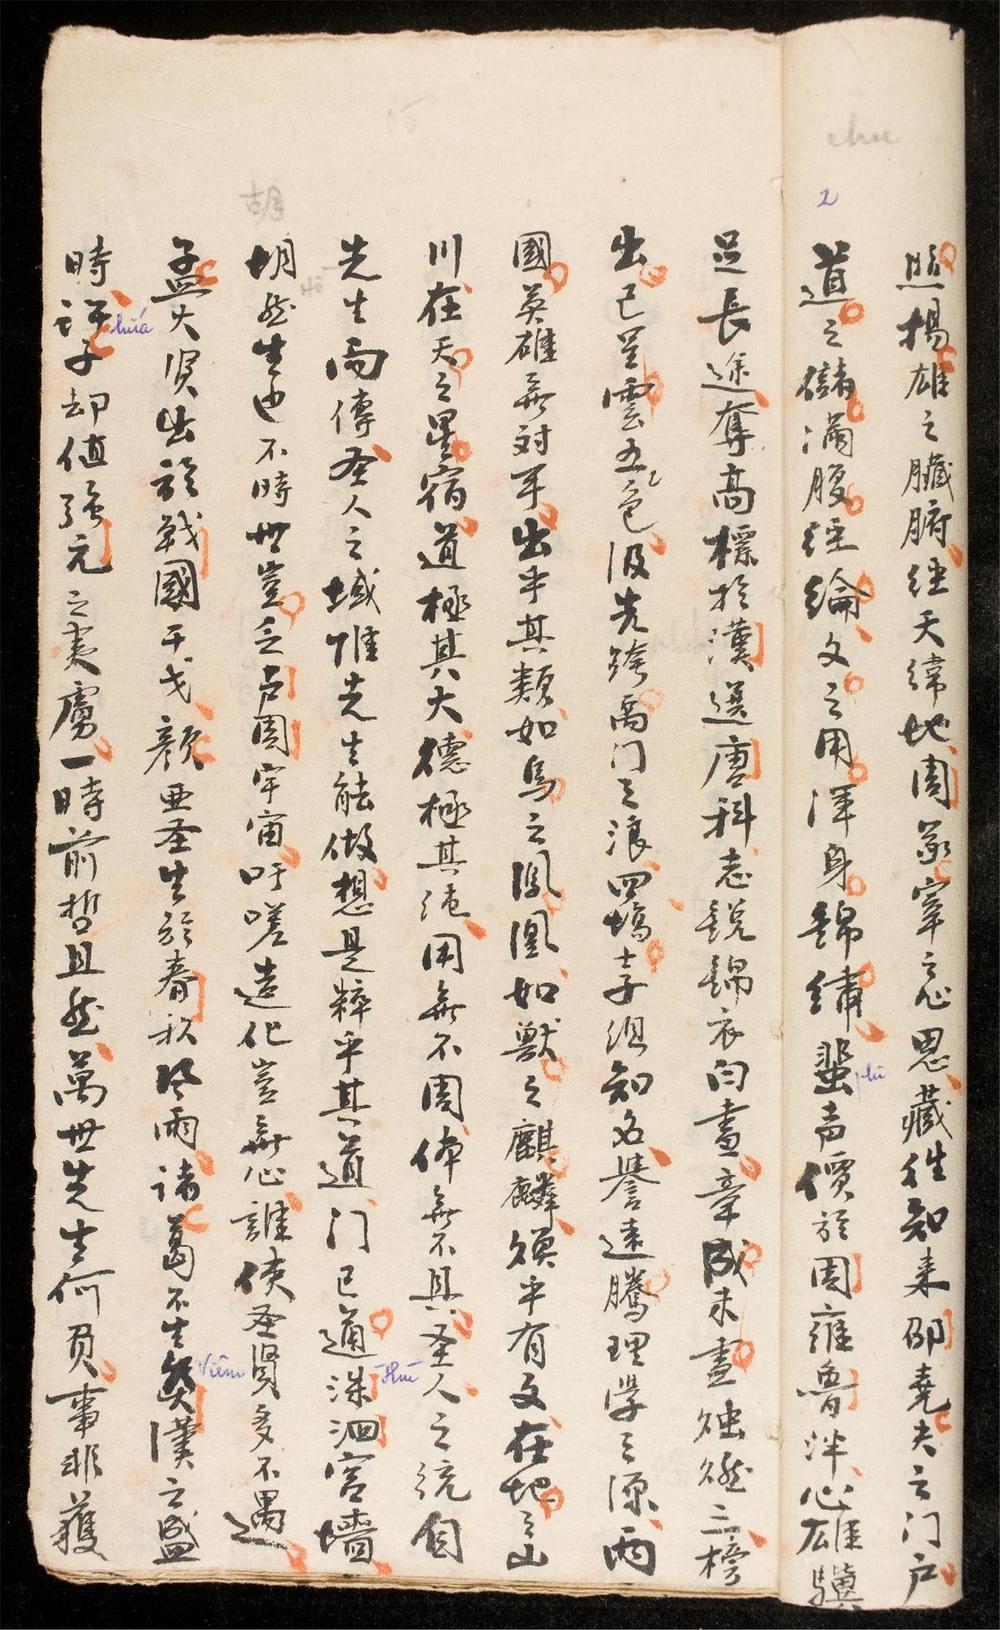 chu
2
胡
照揚雄之臟腑經天緯地周家宰之心思藏往知来邵堯夫之门户
道之儲滿腹經綸文之用渾身錦繡蜚声價於周雍魯泮心雄驥
足長途奪高標於漢選唐科志銳錦衣白晝章成未晝燭燃三榜
出已呈雲五色汲先跨禹门之浪四塲士子俎知名譽遠騰理学之源两
國英雄無对手出乎其類如鳥之鳳凰如獸之麒麟煥乎有文在地之山
川在天之星宿道極其大德極其純用無不周俾無不具圣人之统自
先生而傳圣人之域惟先生能做想是粹乎其道门已通洙泗宫墻
胡然生也不時世豈乏唐周宇宙吁嗟造化豈無心誰使圣賢多不遇
孟大贤出於戰國干戈顏亜圣生於春秋风雨諸葛不生炎漢之盛
時許子却值强元之夷虜一時前哲且然萬世先生何負事非獲
hứa
phi
Viêm
thù
Hồ